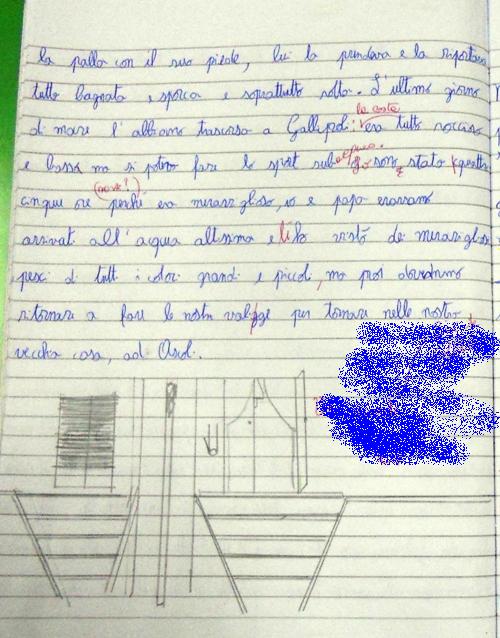 la palla con il suo piede, lui la prendeva e la riportava
tutto bagnata e sporca e soprattutto rotta. L'ultimo giorno
la costa
di mare l'abbiamo trascorso a Gallipoli: era tutto roccioso
e bassa ma si poteva fare lo sport sono stato
(nove?)
cinque ore perché era meraviglioso, io e papà eravamo
arrivati all'acqua altissima e li ho visto dei meravigliosi
pesci di tutti i colori grandi e piccoli, ma poi dovevamo
ritornare a fare le nostre valigge per tornare nelle nostra
vecchia casa, ad Ascol.